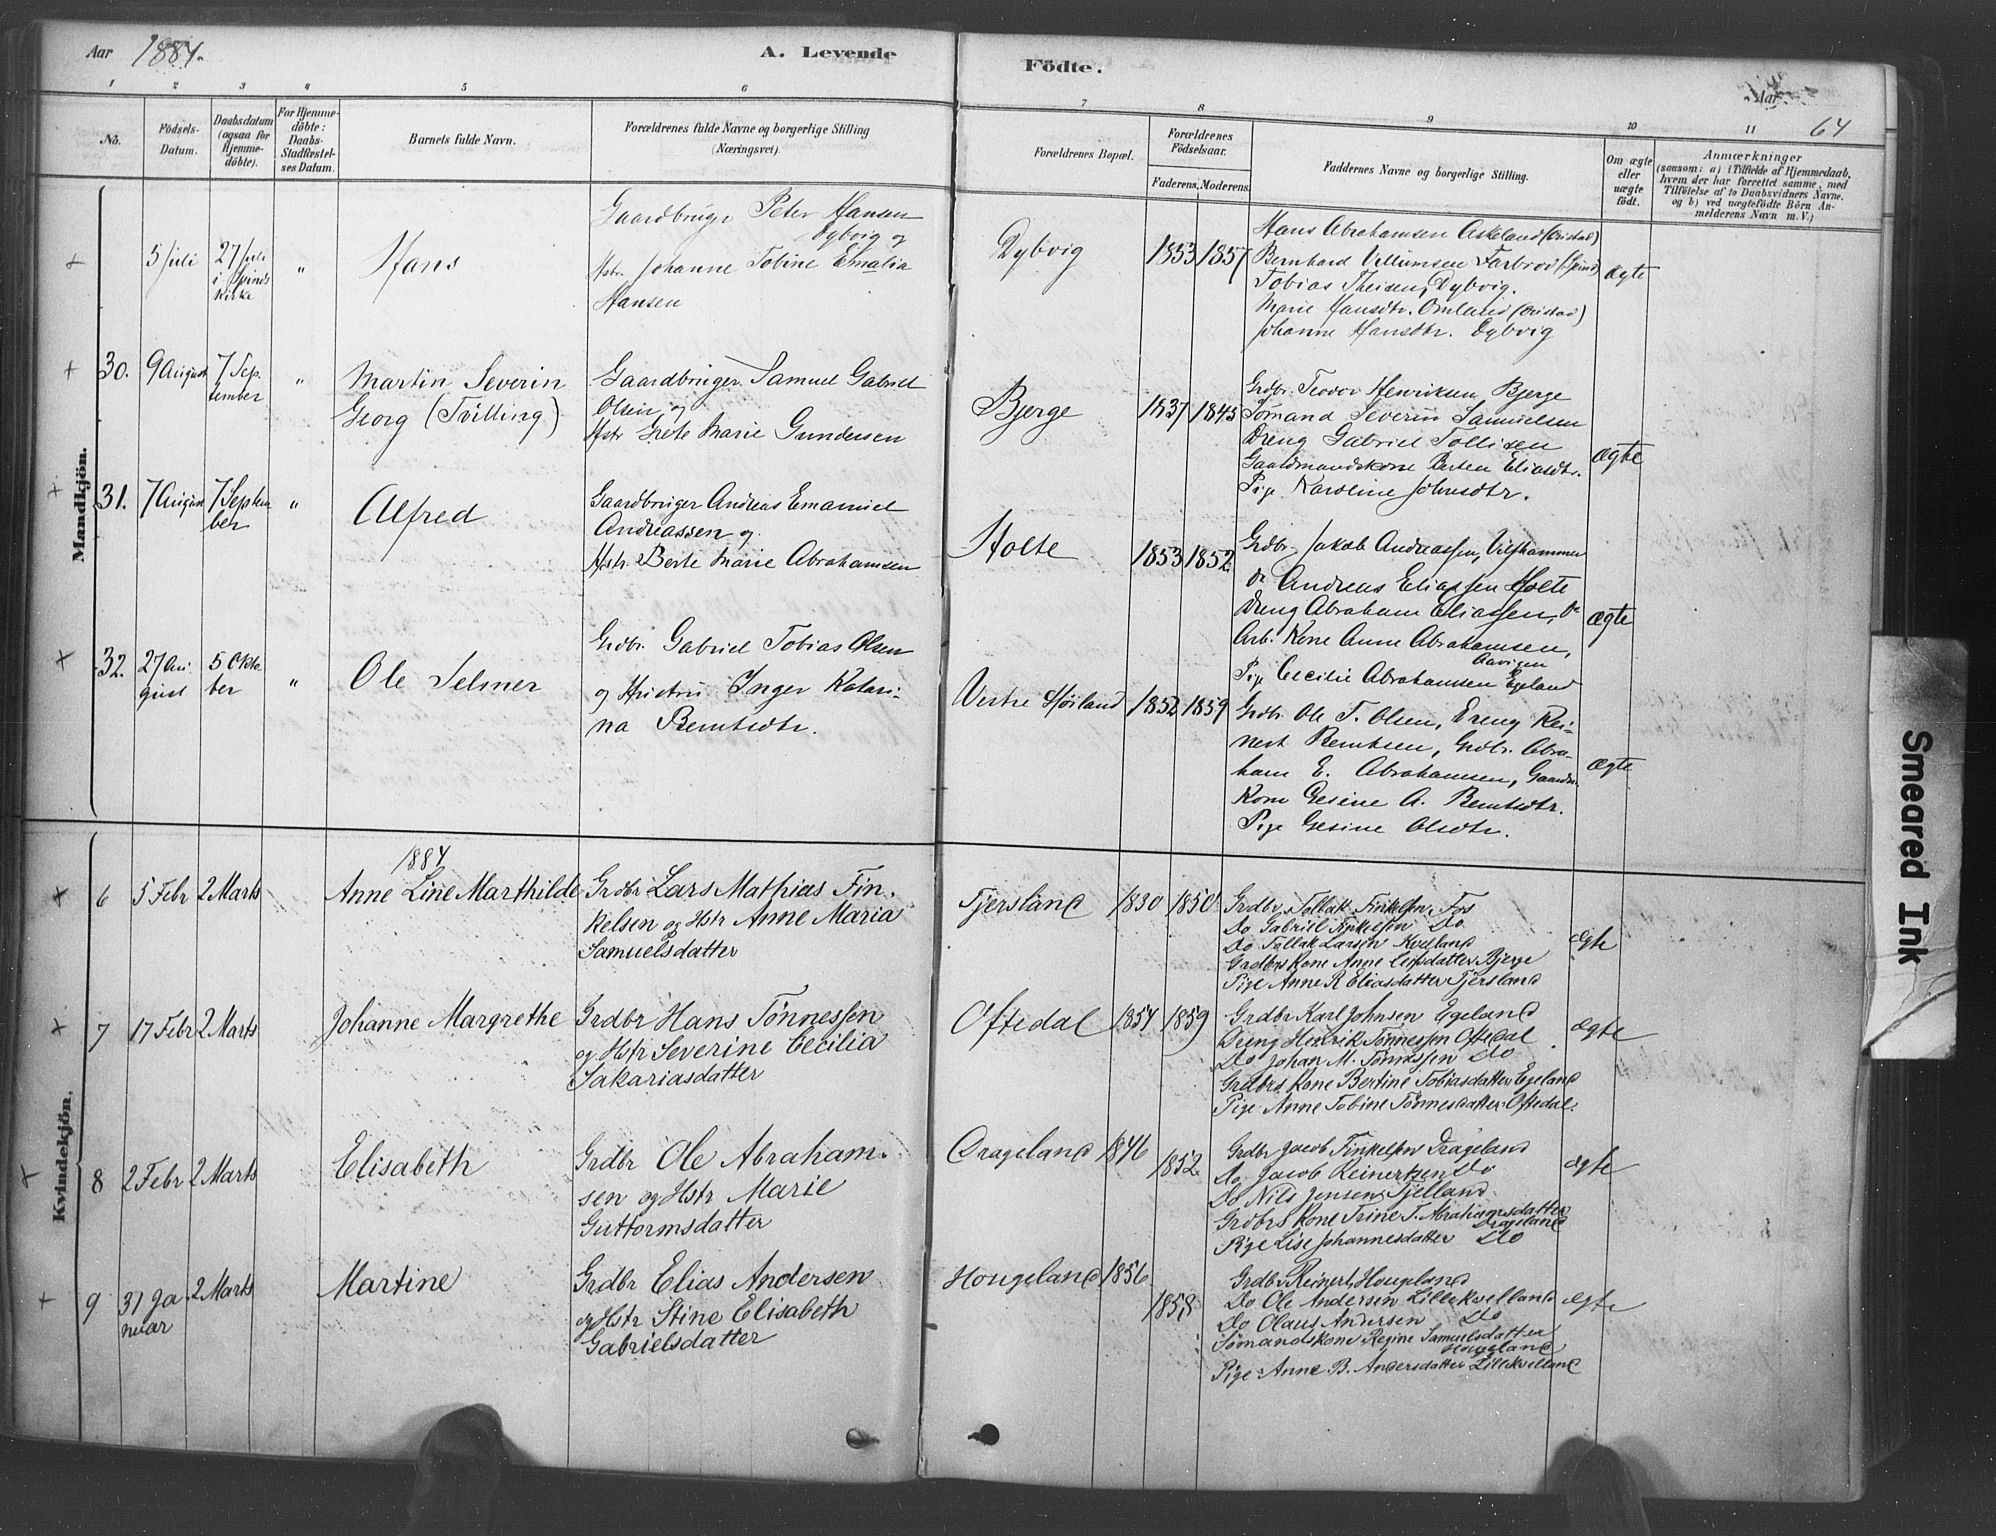 Aar 1884.
A. Levende
Födte.
Aar
64
1 2 3 4 5 6 7 8 9 10 11
No.
Födsels-
Datum.
Daabsdatum
(ogsaa for
Hjemme-
döbte).
For Hjemme-
döbte:
Daabs-
Stadfæstel-
ses Datum.
Barnets fulde Navn.
Forældrenes fulde Navne og borgerlige Stilling
(Næringsvei).
Forældrenes Bopæl.
Forældrenes
Födselsaar.
Faderens. Moderens.
Faddernes Navne og borgerlige Stilling.
Om ægte
eller
uægte
födt.
Anmærkninger
(saasom: a) i Tilfælde af Hjemmedaab,
hvem der har forrettet samme, med
Tilföielse af to Daabsvidners Navne.
og b) ved uægtefödte Börn An-
melderens Navn m. V.)
Mandkjön.
5 Juli
27 Juli
i Spinds
Kirke
"
Hans
Gaardbruger Peter Hansen
Dybvig og
Hstr. Johanne Tobine Emalia
Hansen
Dybvig
1853 1857
Hans Abrahamsen Askeland
Bernhard Villumsen Farbrod (Spind)
Tobias Theisen, Dybvig.
Marie Hansdtr. Omland
Johanne Hansdtr. Dybvig
ægte
30.
9 August
7 Sep.
tember
"
Martin Severin
Georg (Tvilling)
Gaardbruger Samuel Gabriel
Olsen og
Hstr Grete Marie Gundersen
Bjerge
1837 1845
Grdbr. Teodor Henriksen Bjerge
Sømand Severin Samuelsen
Dreng Gabriel Tollisen
Gaardmandskone Berten Eliasdtr.
Pige Karoline Johnsdtr.
ægte
31.
7 August
7 Septem
ber
"
Alfred
Gaardbruger Andreas Emanuel
Andreassen og
Hstr. Berte Marie Abrahamsen
Holte
1853 1852
Grdbr. Jakob Andreassen,
do Andreas Eliassen Holte
Dreng Abraham Eliassen, do
Arb. Kone Anne Abrahamsen,
Aavigen
Pige Cecilie Abrahamsen Egeland
ægte
32.
27 Au
gust
5 Okto
ber
"
Ole Selmer
Grdbr. Gabriel Tobias Olsen
og Hustru Inger Katari-
na Berntsdtr.
Vestre Høiland
1852 1859
Grdbr. Ole T. Olsen, Dreng Rei-
nert Berntsen, Grdbr. Abra
ham E. Abrahamsen, Gaardm.
Kone Gesine A. Berntsdtr.
Pige Gesine Olsdtr.
ægte
Kvindekjön.
1884
6
5 Febr
2 Marts
Anne Line Marthilde
Grdbr Lars Mathias Fin-
kelsen og Hstr Anne Maria
Samuelsdatter
Tjersland
1830 1850
Grdbr Tollak Finkelsen Fos
Do Gabriel Finkelsen Do
Do Tollak Larsen Kvelland
Grdbrs Kone Anne Leifsdatter Bjerge
Pige Anne R Eliasdatter Tjersland
ægte
7
17 Febr
2 Marts
Johanne Margrethe
Grdbr Hans Tønnessen
og Hstr Severine Cecilia
Sakariasdatter
Oftedal
1854 1859
Grdbr Karl Johnsen Egeland
Dreng Henrik Tønnessen Oftedal
Do Johan M. Tønnessen Do
Grdbrs Kone Bertine Tobiasdatter Egeland
Pige Anne Tobine Tønnesdatter Oftedal.
ægte
8
2 Febr
2 Marts
Elisabeth
Grdbr Ole Abraham-
sen og Hstr Marie
Guttormsdatter
Drageland
1846
1852
Grdbr Jacob Finkelsen Drageland
Do Jacob Reinertsen Do
Do Nils Jensen Tjelland
Grdbrs Kone Trine T. Abrahamsdatter
Drageland
Pige Lise Johannesdatter Do
ægte
9
31 Ja
nuar
2 Marts
Martine
Grdbr Elias Andersen
og Hstr Stine Elisabeth
Gabrielsdatter
Hougeland
1856
1858
Grdbr Reinert Hougeland
Do Ole Andersen Lillekvelland
Do Olaus Andersen Do
Sømandskone Regine Samuelsdatter
Hougeland
Pige Anne B. Andersdatter Lillekvelland
ægte
Smeared Ink